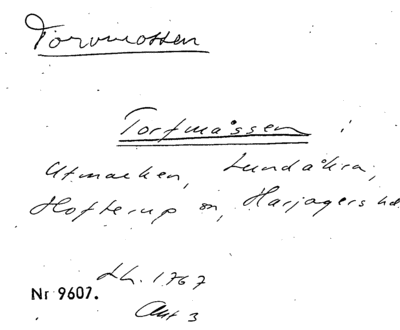 Torvmossen
Torfmåssen i
Utmarken, Lundåkra,
Hofterup sn, Harjagers hd.
Lh. 1767
Nr 9607.
Akt 3